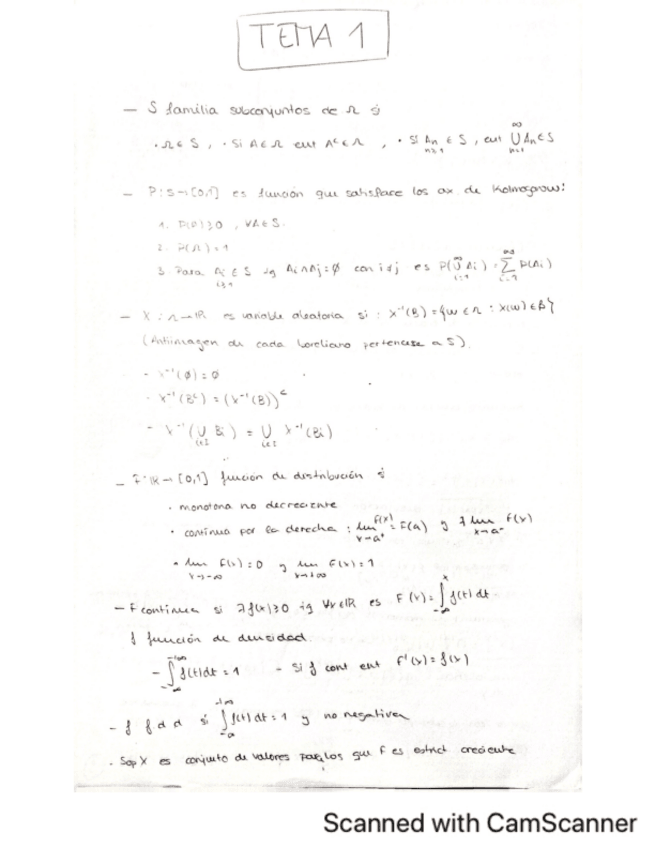 TEMA 1
- S familia subconjuntos de Ω si
· Ω ∈ S , · Si A ∈ Ω ent Aᶜ ∈ Ω , · Si An ∈ S , ent ⋃ An ∈ S
n≥1 n=1 ∞
- P: S→[0,1] es función que satisface los ax. de Kolmogrow:
1. P(A)≥0 , ∀A ∈ S.
2. P(Ω)=1
3. Para Ai ∈ S tq Ai∩Aj=∅ con i≠j es P(⋃ Ai) = ∑ P(Ai)
i≥1 i=1 ∞ i=1 ∞
- X : Ω→ℝ es variable aleatoria si : X⁻¹(B) = {ω ∈ Ω : X(ω) ∈ B}
(Antiimagen de cada boreliano pertenece a S)
- X⁻¹(∅) = ∅
· X⁻¹(Bᶜ) = (X⁻¹(B))ᶜ
- X⁻¹(⋃ Bi) = ⋃ X⁻¹(Bi)
i∈I i∈I
- F: ℝ→[0,1] función de distribución si
· monotona no decreciente
· continua por la derecha : lim F(x) = F(a) y ∃ lim F(x)
x→a⁺ x→a⁻
· lim F(x) = 0 y lim F(x) = 1
x→-∞ x→+∞
- F continua si ∃ f(x)≥0 tq ∀x∈ℝ es F(x) = ∫ f(t) dt
-∞ x
f función de densidad.
- ∫ f(t)dt = 1 - Si f cont ent F'(x) = f(x)
-∞ +∞
- f f d d si ∫ f(t) dt = 1 y no negativa
+∞
· Sop X es conjunto de valores para los que F es estrict creciente
Scanned with CamScanner